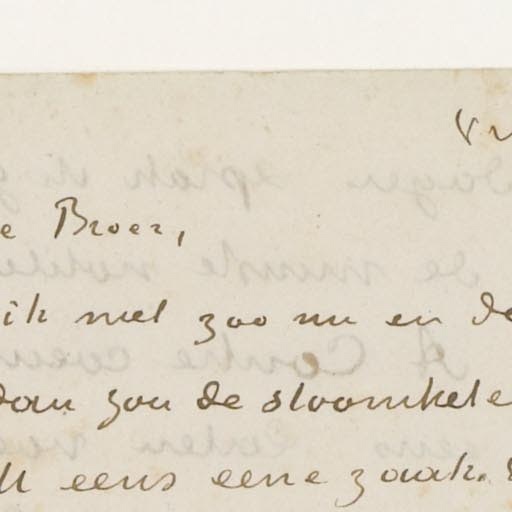 e Broer,
ik niet zoo nu en de
dan zou de stoomketel
eens eene zaak.